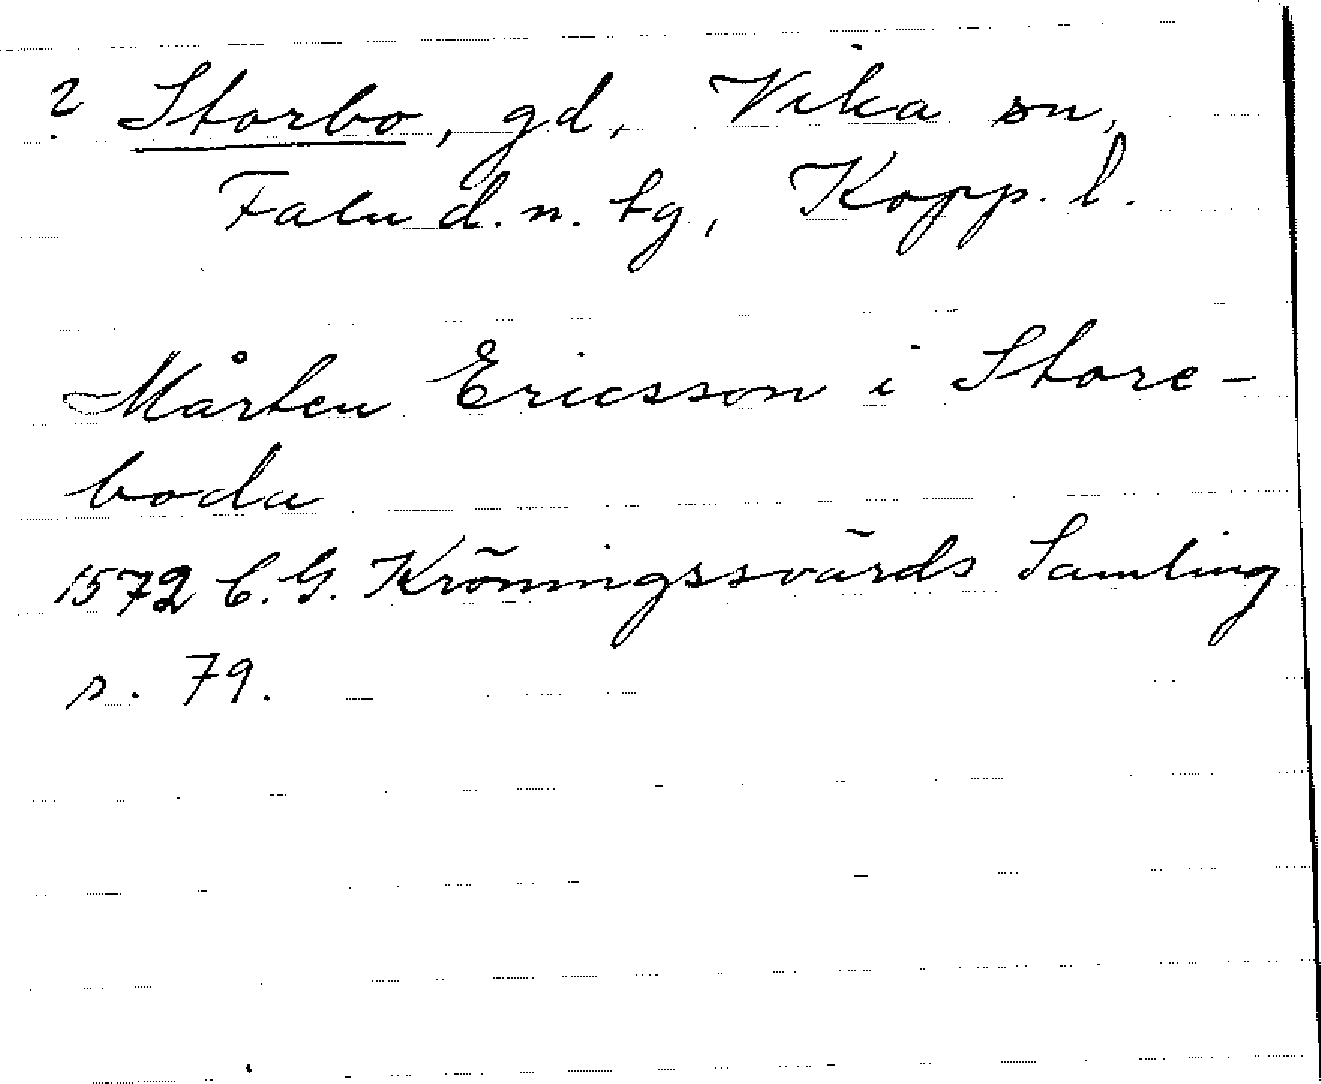 ? Storbo, gd, Vika sn,
Falu d.n. tg, Kopp. l.
Mårten Ericsson i Store-
boda
1572 C. G. Kröningssvärds Samling
s. 79.